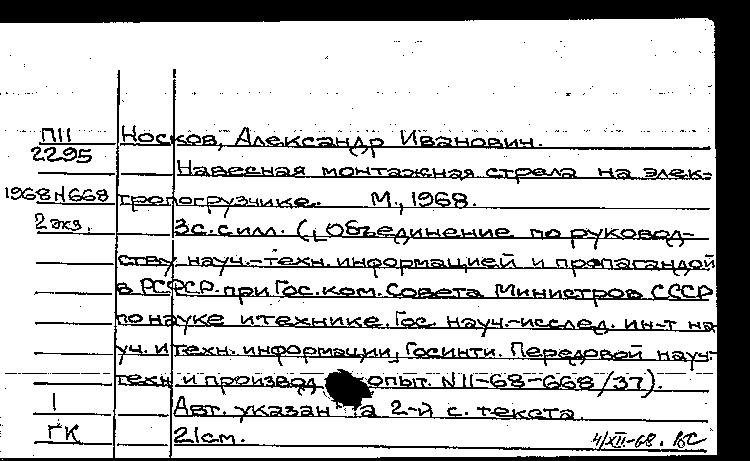 П11 Носков, Александр Иванович.
2295 Навесная монтажная стрела на элек-
1968Н668 тропогрузчике. М., 1968.
2 экз. 3с. с илл. (Объединение по руковод-
ству науч.-техн. информацией и пропагандой
в РСФСР при Гос. ком. Совета Министров СССР
по науке и технике. Гос. науч.-исслед. ин-т на
уч. и техн. информации, Госинти. Передовой науч-
техн. и производ опыт. N11-68-668/37).
1 Авт. указан на 2-й с. текста.
ГК 21см. 4/XII-68.